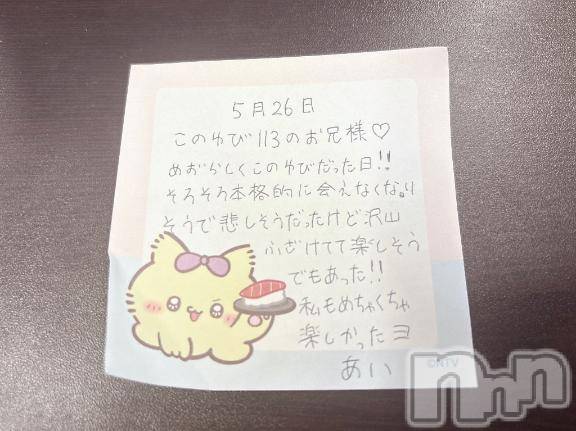 5月26日
このゆび113のお兄様♡
めずらしくこのゆびだった日!!
そろそろ本格的に会えなくなり
そうで悲しそうだったけど沢山
ふざけてて楽しそう
でもあった!!
私もめちゃくちゃ
楽しかったヨ
あい
©NTV
nnn